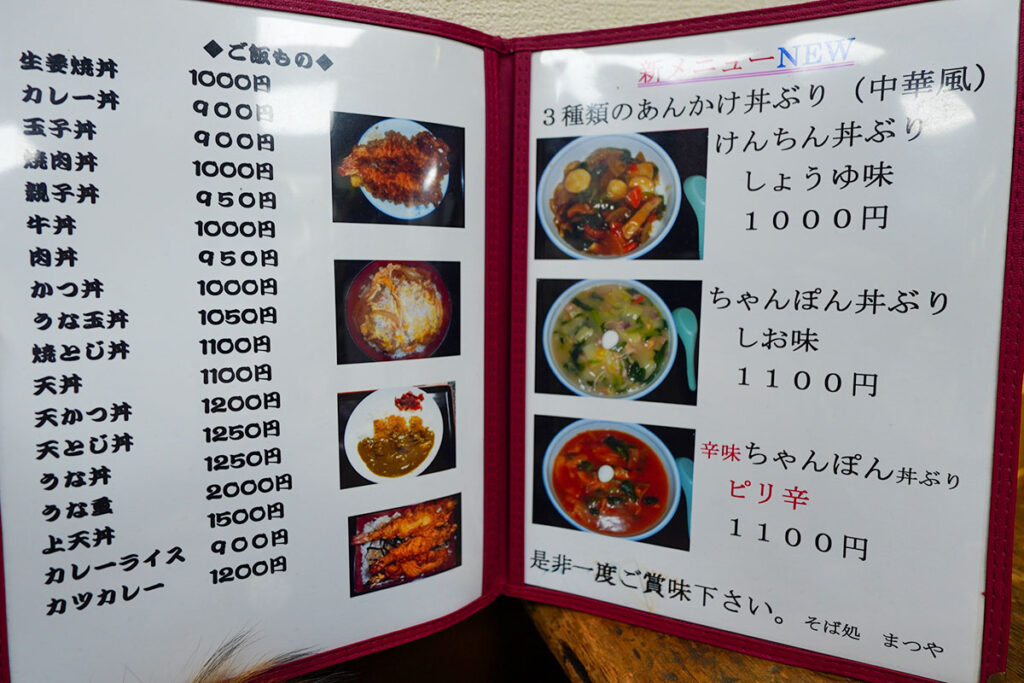 ◆ご飯もの◆
生姜焼丼 1000円
カレー丼 900円
玉子丼 900円
焼肉丼 1000円
親子丼 950円
牛丼 1000円
肉丼 950円
かつ丼 1000円
うな玉丼 1050円
焼とじ丼 1100円
天丼 1100円
天かつ丼 1200円
天とじ丼 1250円
うな丼 1250円
うな重 2000円
上天丼 1500円
カレーライス 900円
カツカレー 1200円
新メニューNEW
３種類のあんかけ丼ぶり（中華風）
けんちん丼ぶり
しょうゆ味
１０００円
ちゃんぽん丼ぶり
しお味
１１００円
辛味ちゃんぽん丼ぶり
ピリ辛
１１００円
是非一度ご賞味下さい。
そば処 まつや